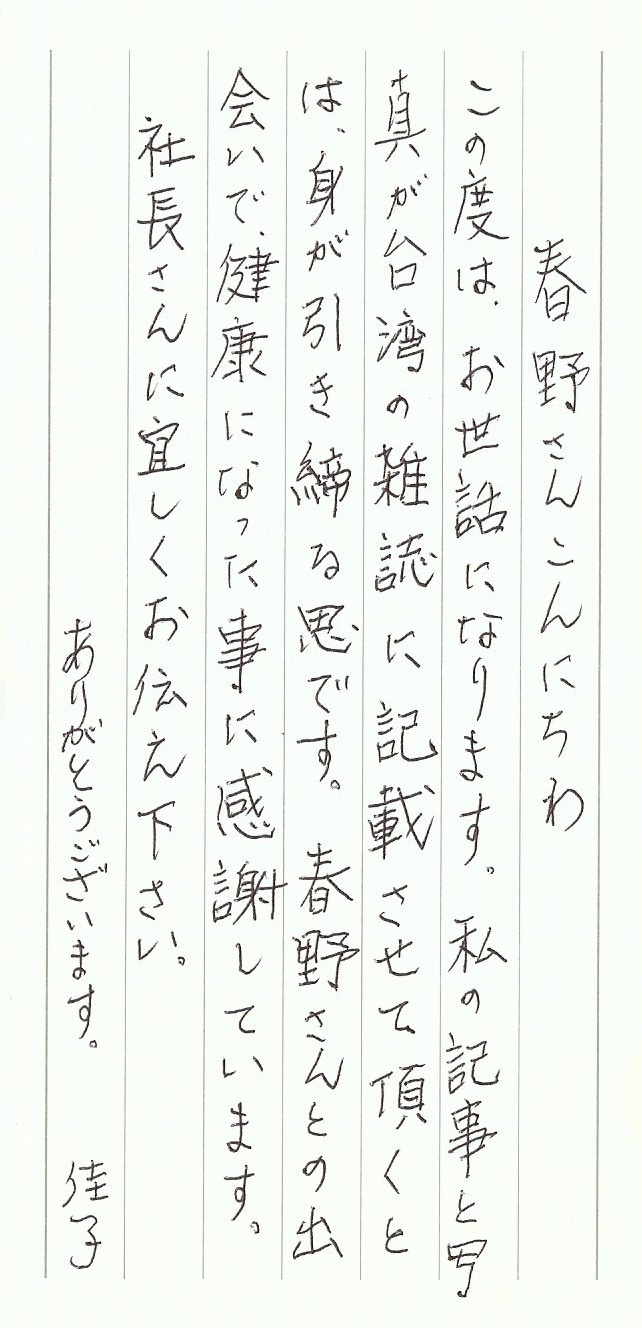 春野さんこんにちわ
この度は、お世話になります。私の記事と写
真が台湾の雑誌に記載させて頂くと
は、身が引き締る思です。春野さんとの出
会いで、健康になった事に感謝しています。
社長さんに宜しくお伝え下さい。
ありがとうございます。 佳子